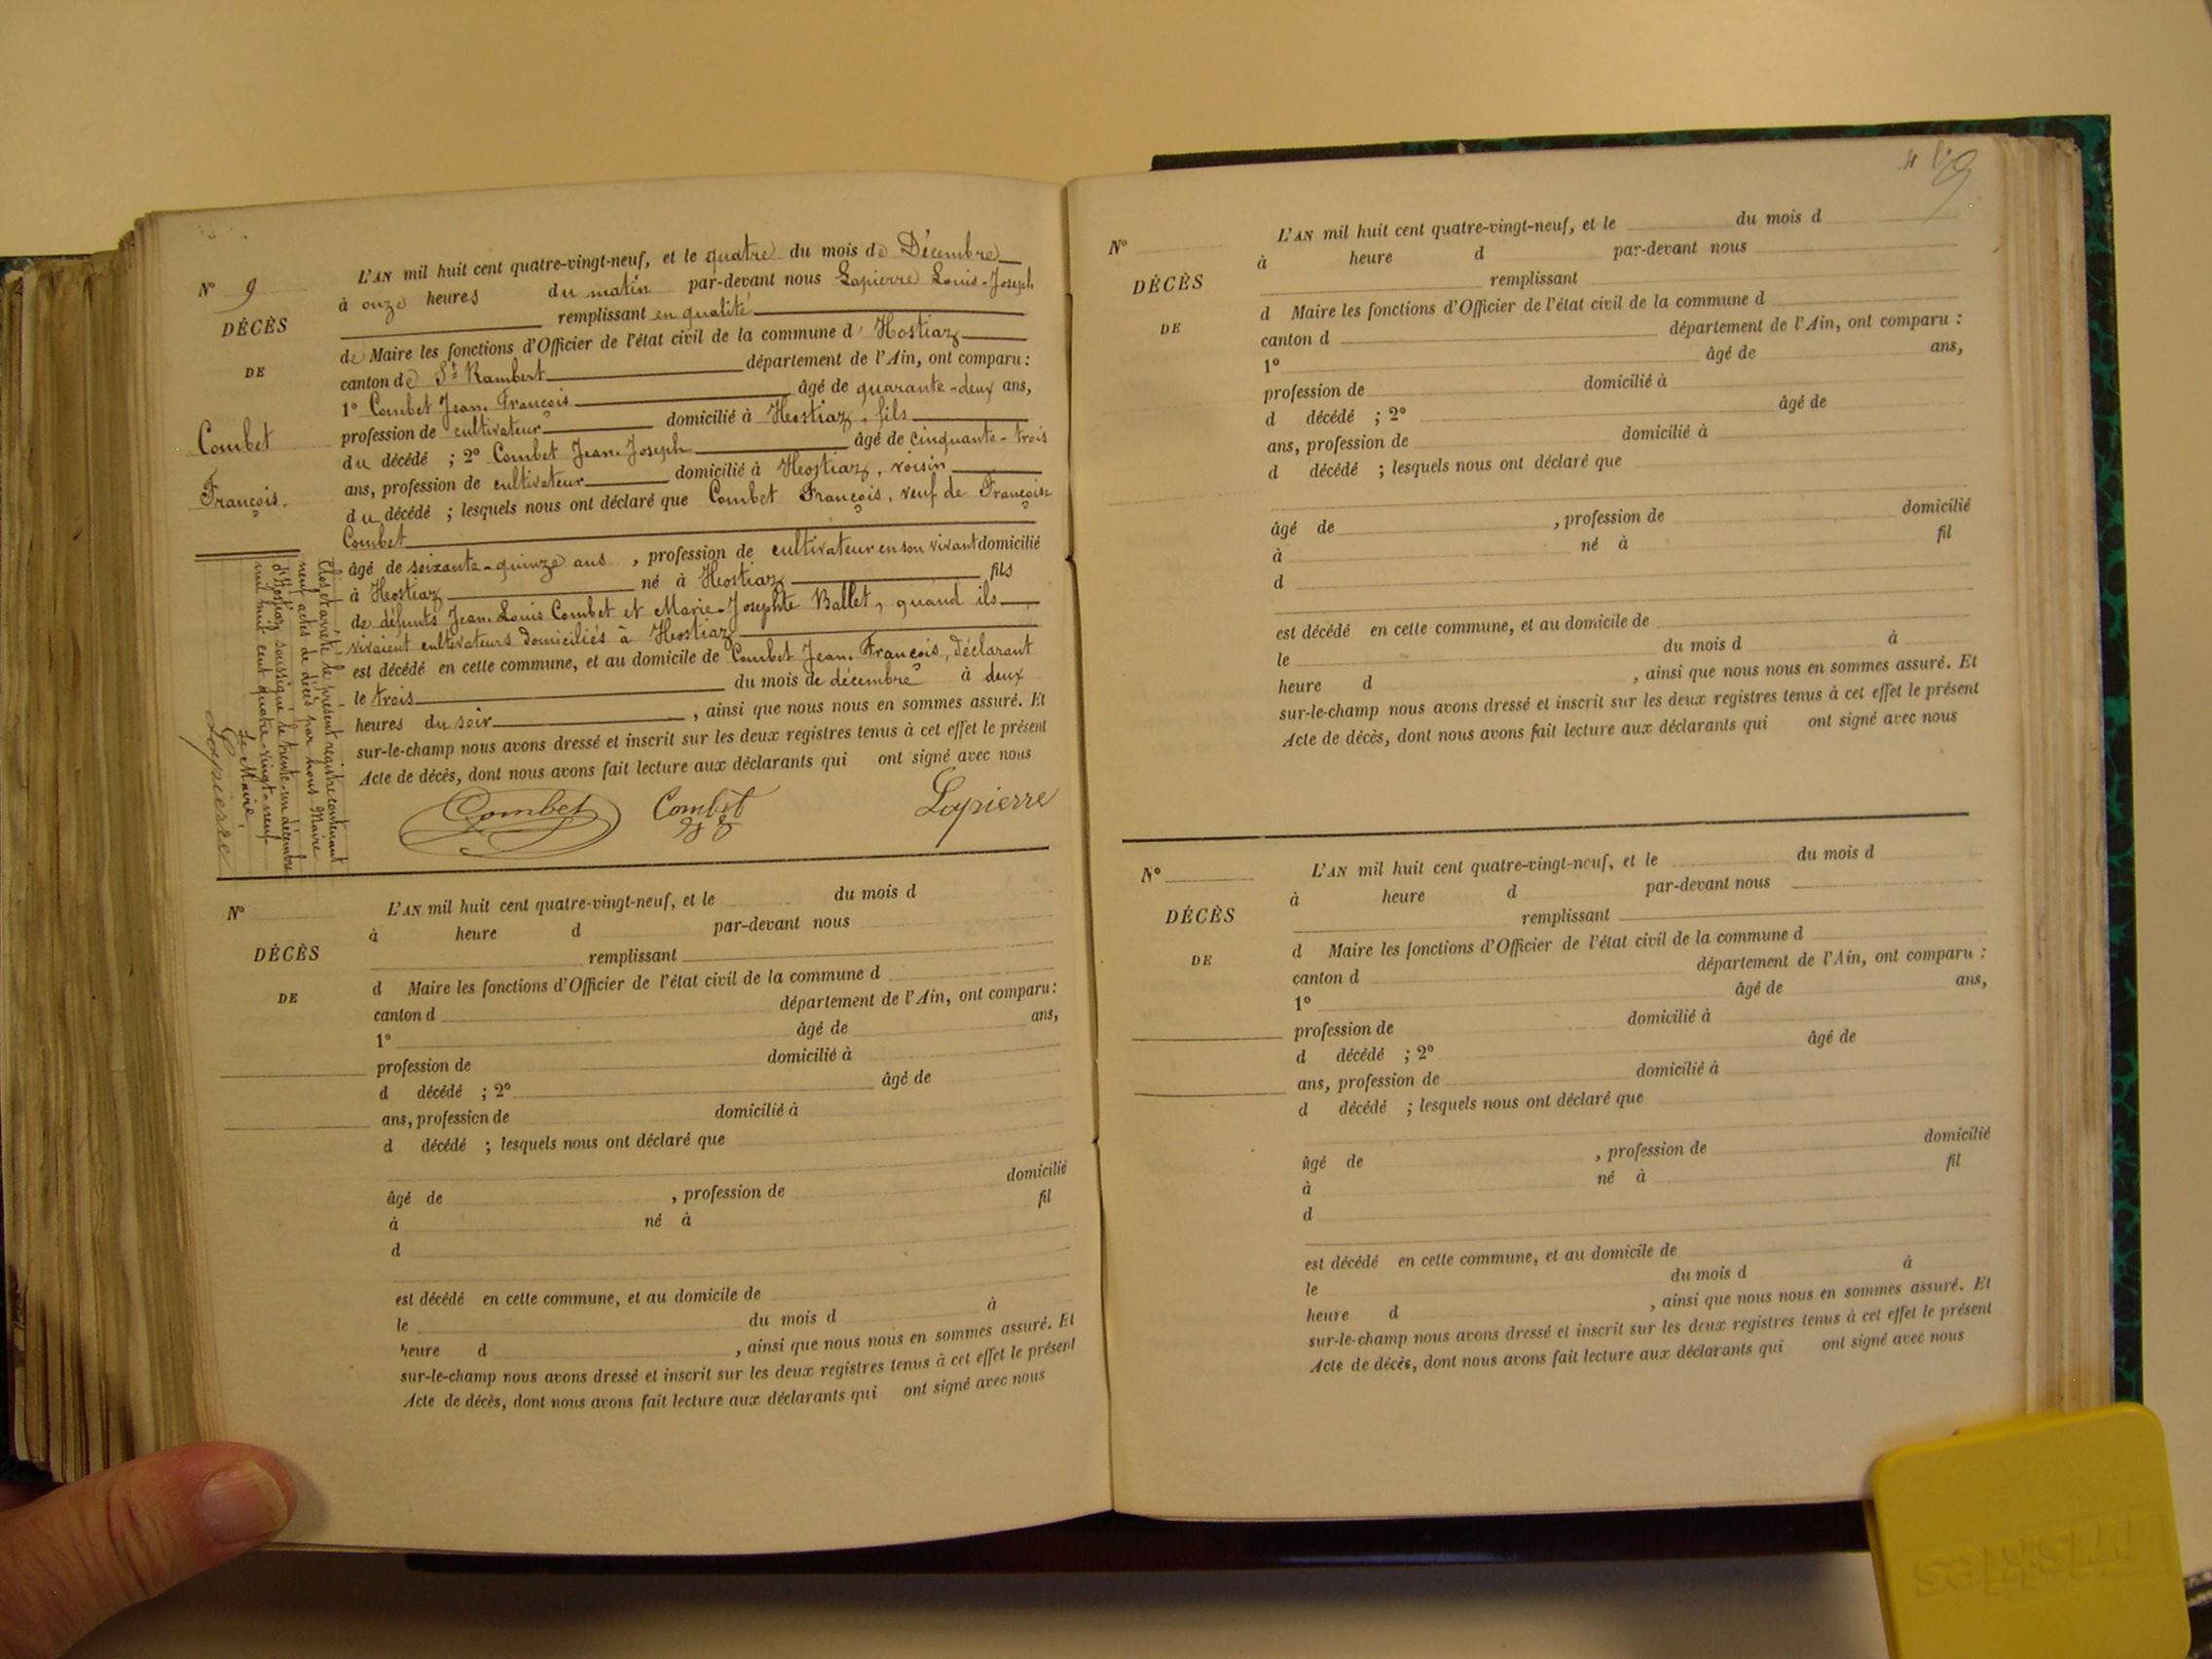 N° 9
DÉCÈS
DE
Combet
François.
L'AN mil huit cent quatre-vingt-neuf, et le quatre du mois de Décembre
à onze heures du matin par-devant nous Lapierre Louis-Joseph
remplissant en qualité
de Maire les fonctions d'Officier de l'état civil de la commune d'Hostiaz
canton de St Rambert département de l'Ain, ont comparu :
1° Combet Jean-François âgé de quarante-deux ans,
profession de cultivateur domicilié à Hostiaz, fils
du décédé ; 2° Combet Jean-Joseph âgé de cinquante-trois
ans, profession de cultivateur domicilié à Hostiaz, voisin
du décédé ; lesquels nous ont déclaré que Combet François, veuf de Françoise
Combet
âgé de soixante-quinze ans , profession de cultivateur en son vivant domicilié
à Hostiaz né à Hostiaz fils
de défunts Jean-Louis Combet et Marie-Josephte Ballet, quand ils
vivaient cultivateurs domiciliés à Hostiaz
est décédé en cette commune, et au domicile de Combet Jean-François, déclarant
le trois du mois de décembre à deux
heures du soir , ainsi que nous nous en sommes assuré. Et
sur-le-champ nous avons dressé et inscrit sur les deux registres tenus à cet effet le présent
Acte de décès, dont nous avons fait lecture aux déclarants qui ont signé avec nous
Combet Combet Lapierre
Clos et arrêté le présent registre contenant
neuf actes de décès par nous Maire
d'Hostiaz soussigné le trente-un décembre
mil huit cent quatre-vingt-neuf
Le Maire,
Lapierre
N°
DÉCÈS
DE
L'AN mil huit cent quatre-vingt-neuf, et le du mois d
à heure d par-devant nous
remplissant
d Maire les fonctions d'Officier de l'état civil de la commune d
canton d département de l'Ain, ont comparu :
1° âgé de ans,
profession de domicilié à
d décédé ; 2° âgé de
ans, profession de domicilié à
d décédé ; lesquels nous ont déclaré que
âgé de , profession de domicilié
à né à fil
d
est décédé en cette commune, et au domicile de
le du mois d à
heure d , ainsi que nous nous en sommes assuré. Et
sur-le-champ nous avons dressé et inscrit sur les deux registres tenus à cet effet le présent
Acte de décès, dont nous avons fait lecture aux déclarants qui ont signé avec nous
N°
DÉCÈS
DE
L'AN mil huit cent quatre-vingt-neuf, et le du mois d
à heure d par-devant nous
remplissant
d Maire les fonctions d'Officier de l'état civil de la commune d
canton d département de l'Ain, ont comparu :
1° âgé de ans,
profession de domicilié à
d décédé ; 2° âgé de
ans, profession de domicilié à
d décédé ; lesquels nous ont déclaré que
âgé de , profession de domicilié
à né à fil
d
est décédé en cette commune, et au domicile de
le du mois d à
heure d , ainsi que nous nous en sommes assuré. Et
sur-le-champ nous avons dressé et inscrit sur les deux registres tenus à cet effet le présent
Acte de décès, dont nous avons fait lecture aux déclarants qui ont signé avec nous
N°
DÉCÈS
DE
L'AN mil huit cent quatre-vingt-neuf, et le du mois d
à heure d par-devant nous
remplissant
d Maire les fonctions d'Officier de l'état civil de la commune d
canton d département de l'Ain, ont comparu :
1° âgé de ans,
profession de domicilié à
d décédé ; 2° âgé de
ans, profession de domicilié à
d décédé ; lesquels nous ont déclaré que
âgé de , profession de domicilié
à né à fil
d
est décédé en cette commune, et au domicile de
le du mois d à
heure d , ainsi que nous nous en sommes assuré. Et
sur-le-champ nous avons dressé et inscrit sur les deux registres tenus à cet effet le présent
Acte de décès, dont nous avons fait lecture aux déclarants qui ont signé avec nous